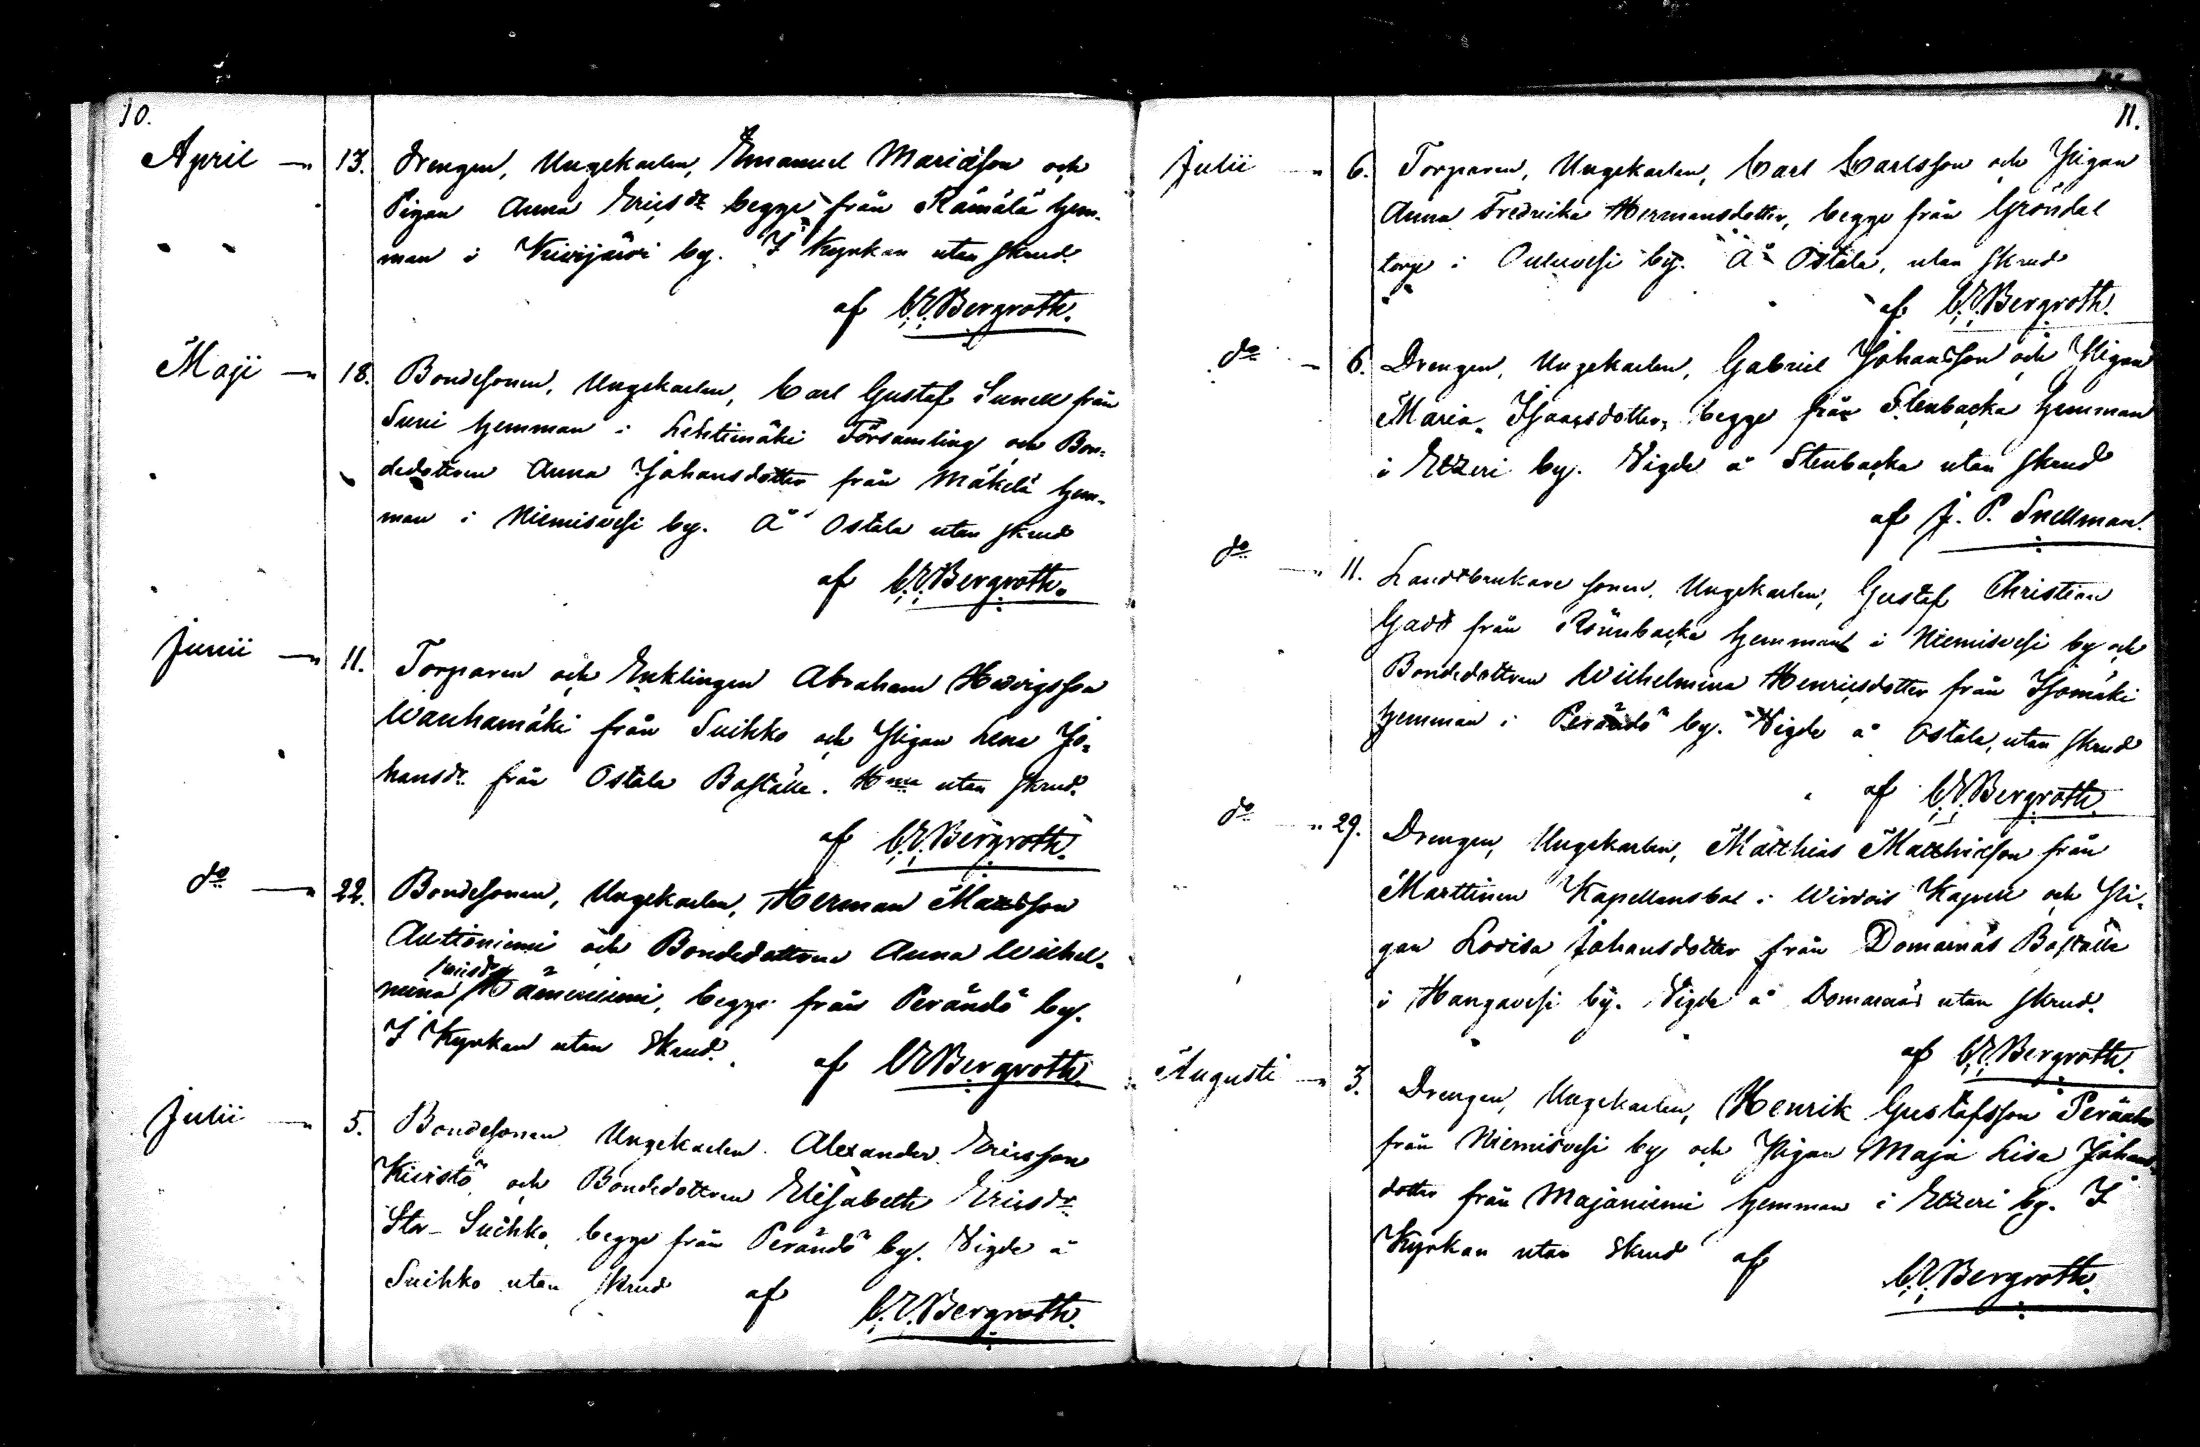 10.
April — 13. Drengen, Ungekarlen, Emanuel Mariæson och
Pigan Anna Ericsdr begge från Rämälä hem-
man i Kivijärvi by. I Kyrkan utan skrud
af C. E. Bergroth.
Maji — 18. Bondesonen, Ungekarlen, Carl Gustaf Sunell från
Suni hemman i Lehtimäki Församling och Bon-
dedottren Anna Johansdotter från Mäkelä hem-
man i Niemisvesi by. Å Ostala utan skrud
af C. E. Bergroth.
Junii — 11. Torparen och Enklingen Abraham Hedvigsson
Wanhamäki från Suihko och Pigan Lena Jo-
hansdr från Ostala Boställe. Hma utan skrud.
af C. E. Bergroth.
do — 22. Bondesonen, Ungekarlen, Herman Mattsson
Auttioniemi och Bondedottren Anna Wilhel-
mina Hämeniemi, begge från Perändö by.
I Kyrkan utan skrud. af C E Bergroth.
Julii — 5. Bondesonen Ungekarlen Alexander Ericsson
Kivistö och Bondedottren Elisabeth Ericsdr
Stor-Suihko, begge från Perändö by. Vigde å
Suihko utan skrud af C. E. Bergroth.
11.
Julii — 6. Torparen, Ungekarlen, Carl Carlsson och Pigan
Anna Fredrika Hermansdotter, begge från Gröndal
torp i Ouluvesi by. Å Ostala, utan skrud
af C. E. Bergroth.
do — 6. Drengen, Ungekarlen, Gabriel Johansson och Pigan
Maria Isaacsdotter, begge från Stenbacka hemman
i Etzeri by. Vigde å Stenbacka utan skrud
af J. P. Snellman.
do — 11. Landtbrukare sonen, Ungekarlen, Gustaf Christian
Gadd från Rönnbacka hemman i Niemisvesi by och
Bondedottren Wilhelmina Henricsdotter från Isomäki
hemman i Perändö by. Vigde å Ostala, utan skrud
af C. E. Bergroth.
do " 29. Drengen, Ungekarlen, Matthias Matthiæson från
Marttinen Kapellansbol i Wirdois Kapell och Pi-
gan Lovisa Johansdotter från Domarnäs Boställe
i Hangavesi by. Vigde å Domarnäs utan skrud.
af C. E. Bergroth.
Augusti — 3. Drengen, Ungekarlen, Henrik Gustafsson
från Niemisvesi by och Pigan Maja Lisa Johans-
dotter från Majaniemi hemman i Etzeri by. I
Kyrkan utan skrud af C. E. Bergroth.